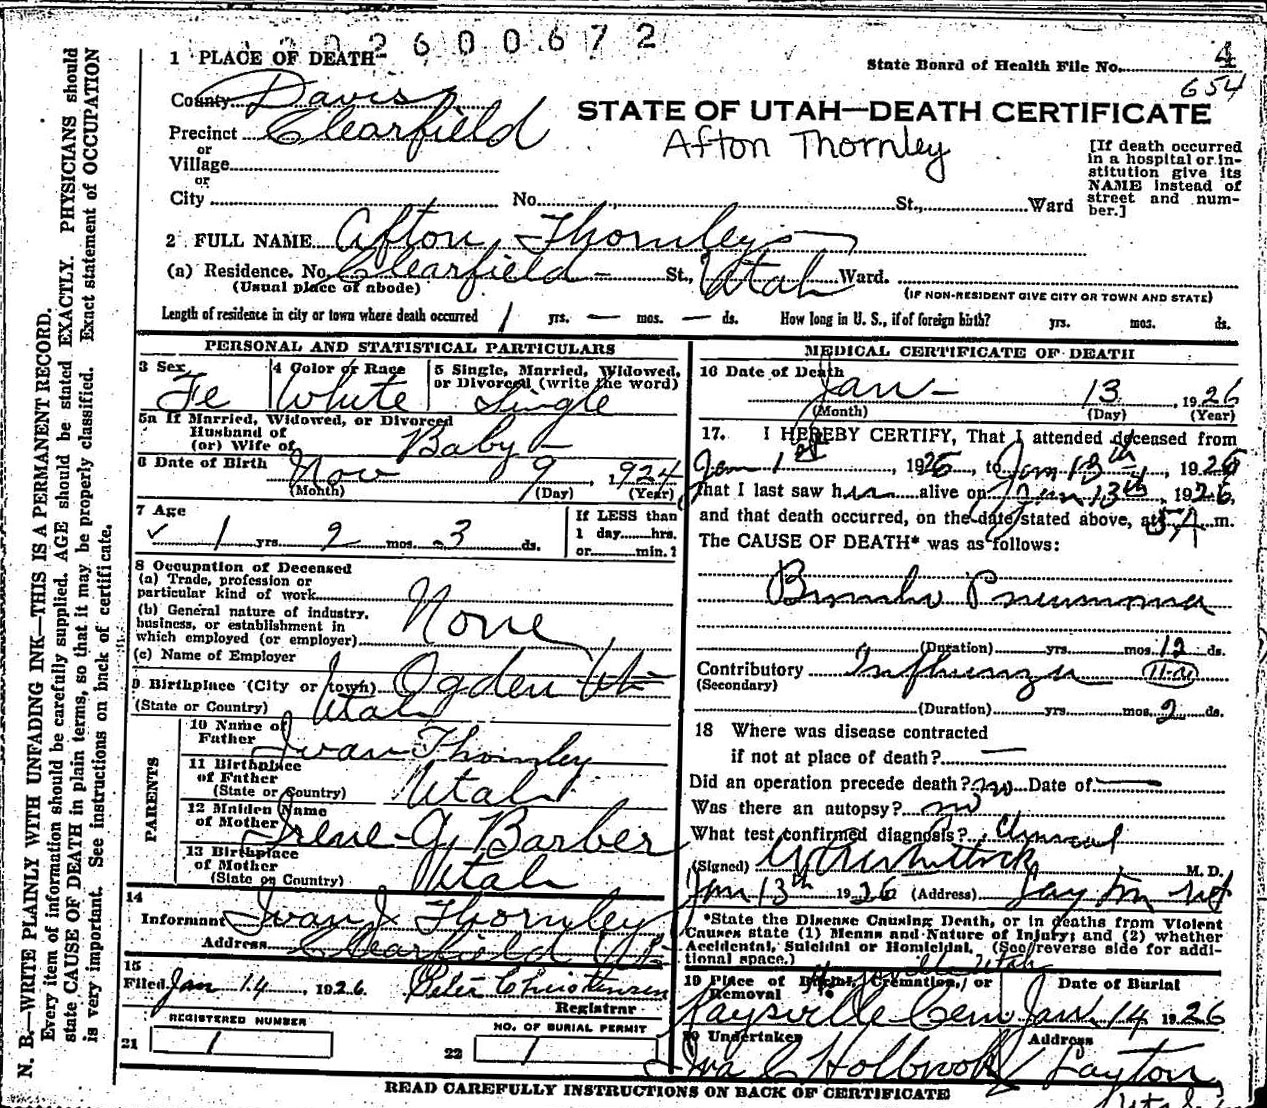 2600672
1 PLACE OF DEATH
State Board of Health File No. 4
654
County Davis
STATE OF UTAH—DEATH CERTIFICATE
Precinct Clearfield
Afton Thornley
or
Village
or
City No. St., Ward
[If death occurred in a hospital or institution give its NAME instead of street and number.]
2 FULL NAME Afton Thornley
(a) Residence. No. Clearfield - St., Utah Ward.
(Usual place of abode) (IF NON-RESIDENT GIVE CITY OR TOWN AND STATE)
Length of residence in city or town where death occurred 1 yrs. — mos. — ds. How long in U. S., if of foreign birth? yrs. mos. ds.
PERSONAL AND STATISTICAL PARTICULARS
3 Sex Fe
4 Color or Race White
5 Single, Married, Widowed, or Divorced (write the word) Single
5a If Married, Widowed, or Divorced
Husband of
(or) Wife of Baby —
6 Date of Birth Nov 9, 1924
(Month) (Day) (Year)
7 Age
✓ 1 yrs. 2 mos. 3 ds.
If LESS than
1 day hrs.
or min.?
8 Occupation of Deceased
(a) Trade, profession or
particular kind of work
(b) General nature of industry,
business, or establishment in
which employed (or employer) None
(c) Name of Employer
9 Birthplace (City or town) Ogden Ut
(State or Country) Utah
PARENTS
10 Name of
Father Ivan Thornley
11 Birthplace
of Father
(State or Country) Utah
12 Maiden Name
of Mother Irene G. Barber
13 Birthplace
of Mother
(State or Country) Utah
14
Informant Ivan J. Thornley
Address Clearfield Ut
15
Filed Jan 14, 1926. Peter Christensen
Registrar
REGISTERED NUMBER
21 1
NO. OF BURIAL PERMIT
22 1
MEDICAL CERTIFICATE OF DEATH
16 Date of Death
Jan - 13, 1926
(Month) (Day) (Year)
17. I HEREBY CERTIFY, That I attended deceased from
Jan 1st, 1926, to Jan 13th, 1926
that I last saw her alive on Jan 13th, 1926,
and that death occurred, on the date stated above, at 5 A m.
The CAUSE OF DEATH* was as follows:
Broncho Pneumonia
(Duration) yrs. mos. 12 ds.
Contributory Influenza
(Secondary)
(Duration) yrs. mos. 2 ds.
18 Where was disease contracted
if not at place of death? —
Did an operation precede death? no Date of —
Was there an autopsy? no
What test confirmed diagnosis? Clinical
(Signed) Whitlock M. D.
Jan 13th 1926 (Address) Layton Ut
*State the Disease Causing Death, or in deaths from Violent
Causes state (1) Means and Nature of Injury; and (2) whether
Accidental, Suicidal or Homicidal. (See reverse side for additional space.)
Kaysville Utah
19 Place of Burial, Cremation, or
Removal
Date of Burial
Kaysville Cem Jan 14 1926
20 Undertaker Address
Ira C Holbrook Layton
Utah
READ CAREFULLY INSTRUCTIONS ON BACK OF CERTIFICATE
N. B.—WRITE PLAINLY WITH UNFADING INK—THIS IS A PERMANENT RECORD.
Every item of information should be carefully supplied. AGE should be stated EXACTLY. PHYSICIANS should
state CAUSE OF DEATH in plain terms, so that it may be properly classified. Exact statement of OCCUPATION
is very important. See instructions on back of certificate.